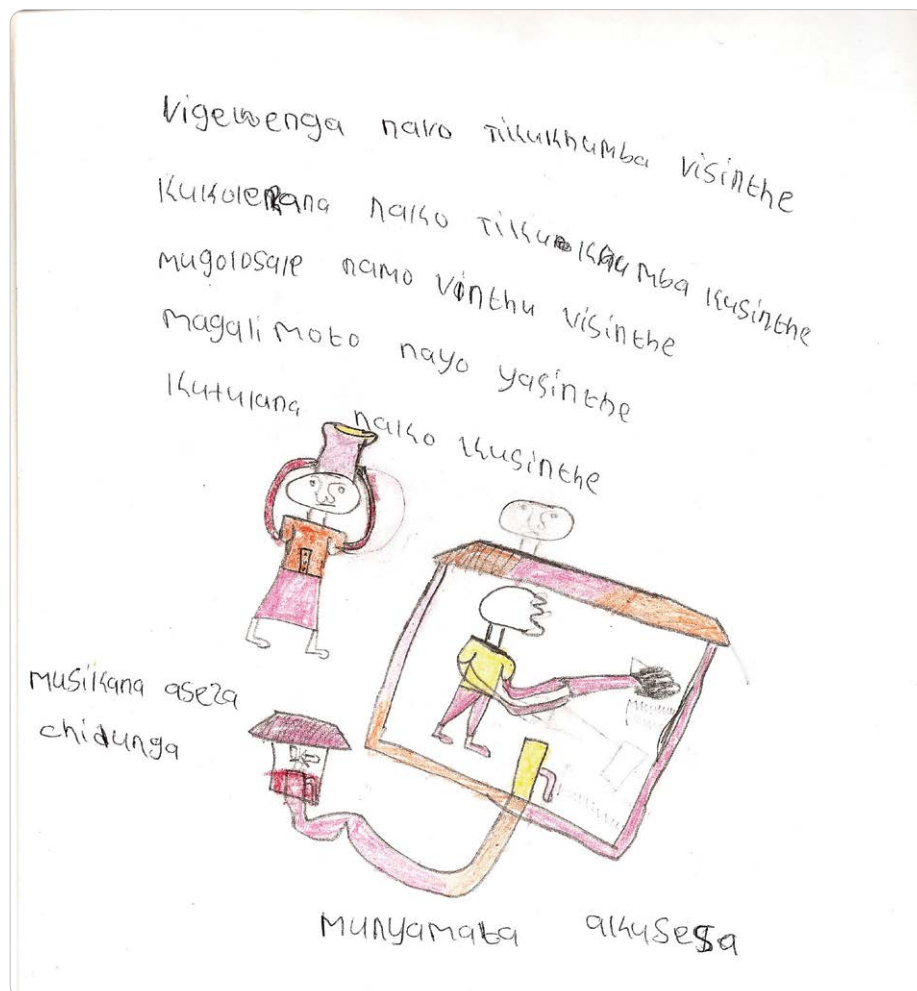 Vigewenga navo tikukhumba visinthe
Kukolerana nako tikukhumba kusinthe
mugolosale namo vinthu visinthe
magalimoto nayo yasinthe
Kutulana nako kusinthe
musikana aseza
chidunga
munyamata akusesa